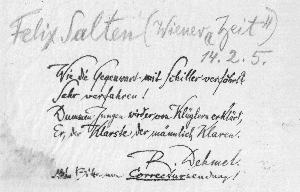 Felix Salten (Wiener "Zeit")
14. 2. 5.
Wie die Gegenwart mit Schiller verfährt?
Sehr verfahren!
Dummen Jungen wird er von Klüglern erklärt,
Er, der Klarste der männlich Klaren.
R. Dehmel.
Bitte um Correcturesendung!